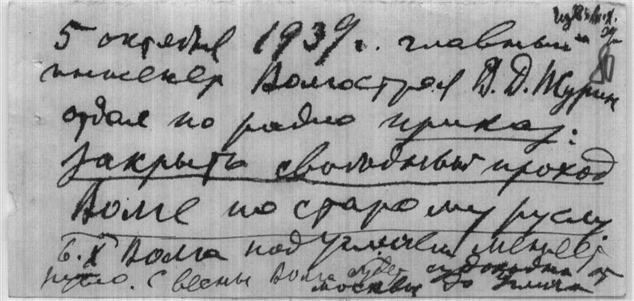 5 октября 1939 г. главный
инженер Волгостроя В. Д. Журин
отдал по радио приказ:
закрыть свободный проход
Волге по старому руслу
6.X Волга под Угличем меняет
русло. С весны Волга будет судоходна от
Москвы до Углича